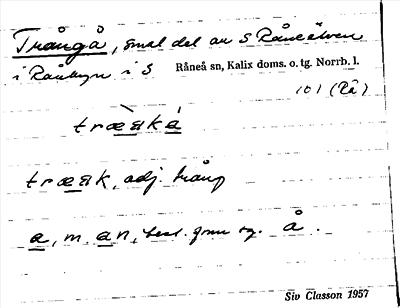 Trångå, smal del av S Råneälven
i Råbyn i S Råneå sn, Kalix doms. o. tg. Norrb. l.
101 (Rå)
træŋkå
træŋk, adj. trång
a, m. an, best. form sg. å.
Siv Classon 1957